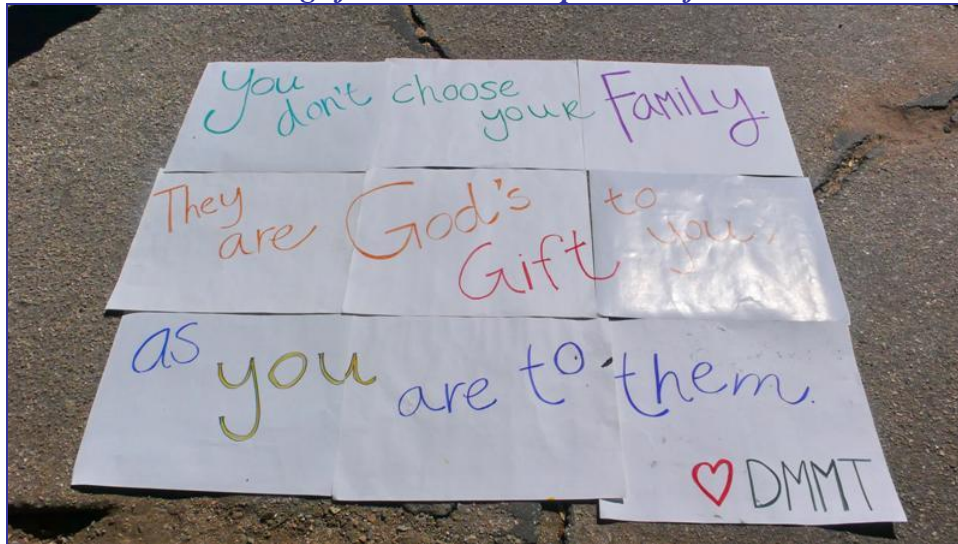 You don't choose your Family.
They are God's Gift to you,
as you are to them.
♡ DMMT